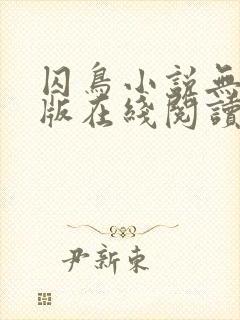 囚鳥小説無
版在綫閱讀
尹新東